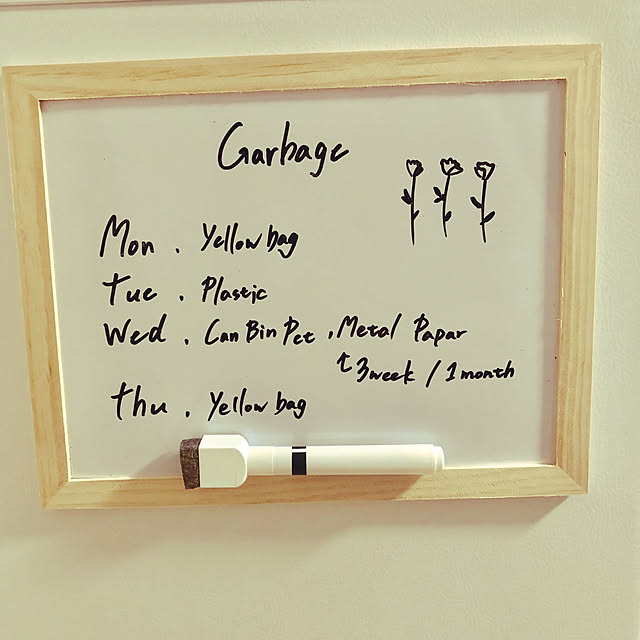 Garbage
Mon . Yellow bag
Tue . Plastic
Wed . Can Bin Pet . Metal Papar
↑3week / 1month
Thu . Yellow bag